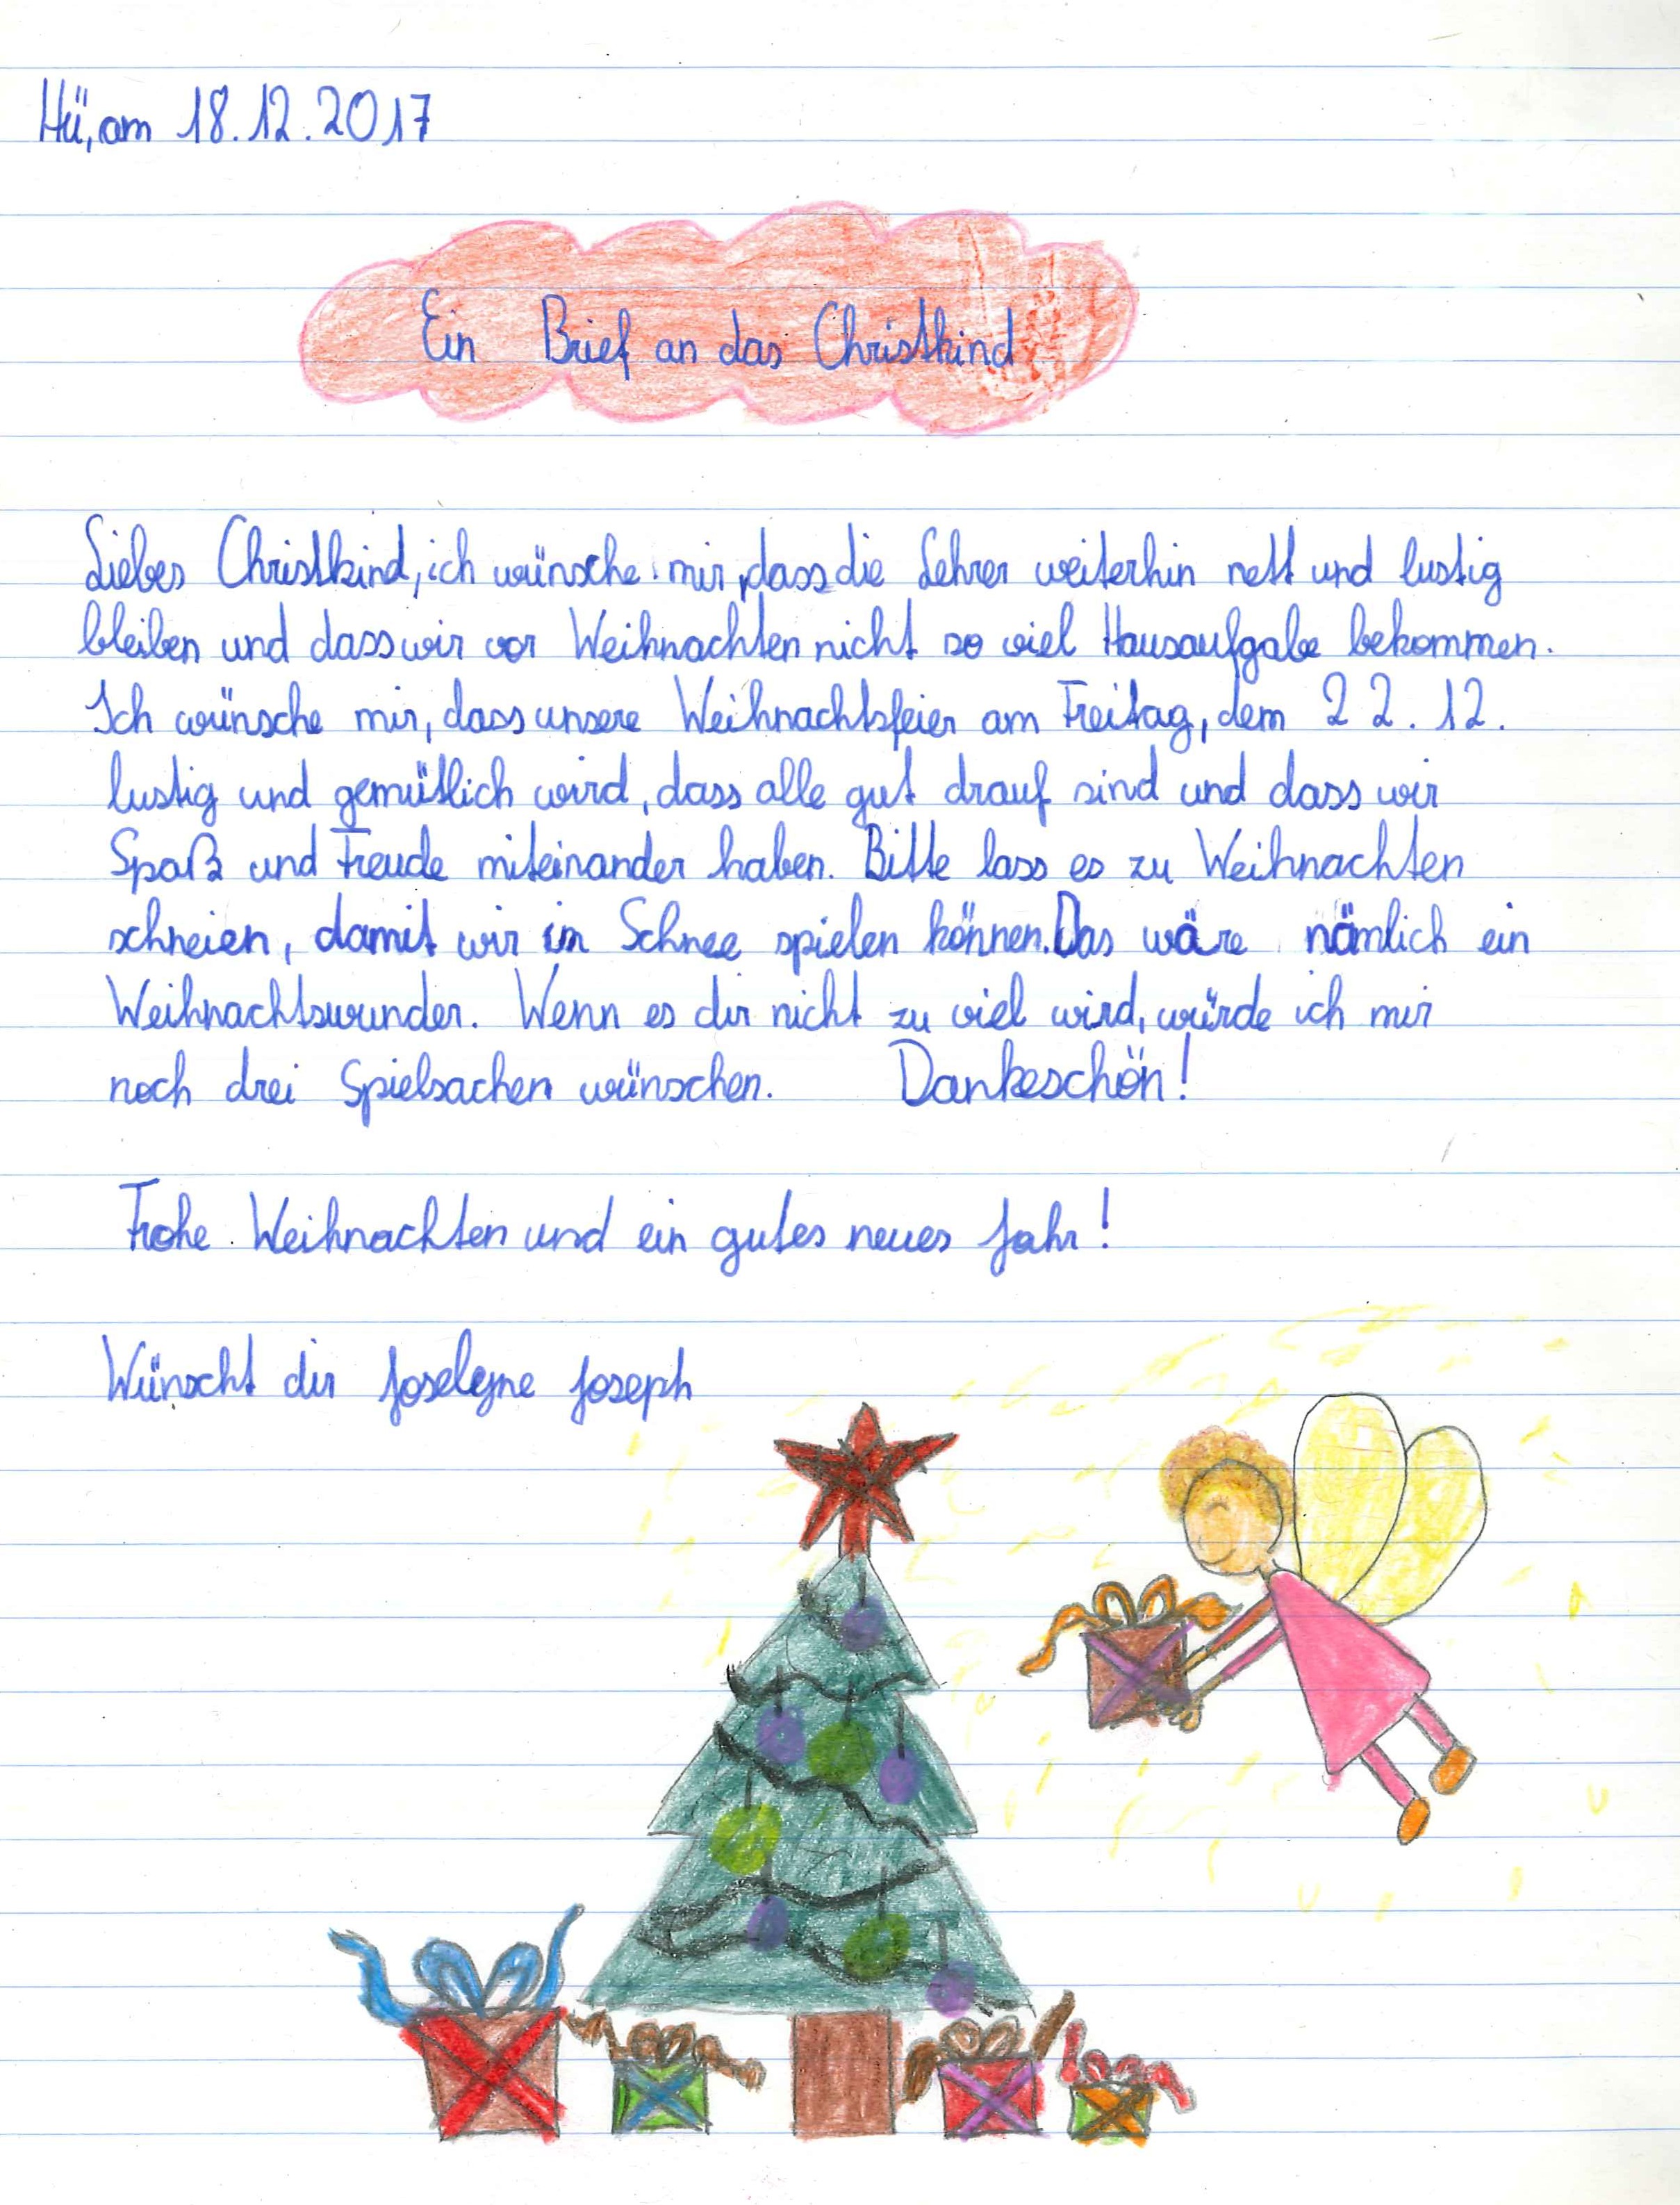 Hü, am 18.12.2017
Ein Brief an das Christkind
Liebes Christkind, ich wünsche mir, dass die Lehrer weiterhin nett und lustig
bleiben und dass wir vor Weihnachten nicht so viel Hausaufgabe bekommen.
Ich wünsche mir, dass unsere Weihnachtsfeier am Freitag, dem 22.12.
lustig und gemütlich wird, dass alle gut drauf sind und dass wir
Spaß und Freude miteinander haben. Bitte lass es zu Weihnachten
schneien, damit wir im Schnee spielen können. Das wäre nämlich ein
Weihnachtswunder. Wenn es dir nicht zu viel wird, würde ich mir
noch drei Spielsachen wünschen. Dankeschön!
Frohe Weihnachten und ein gutes neues Jahr!
Wünscht dir Joselyne Joseph